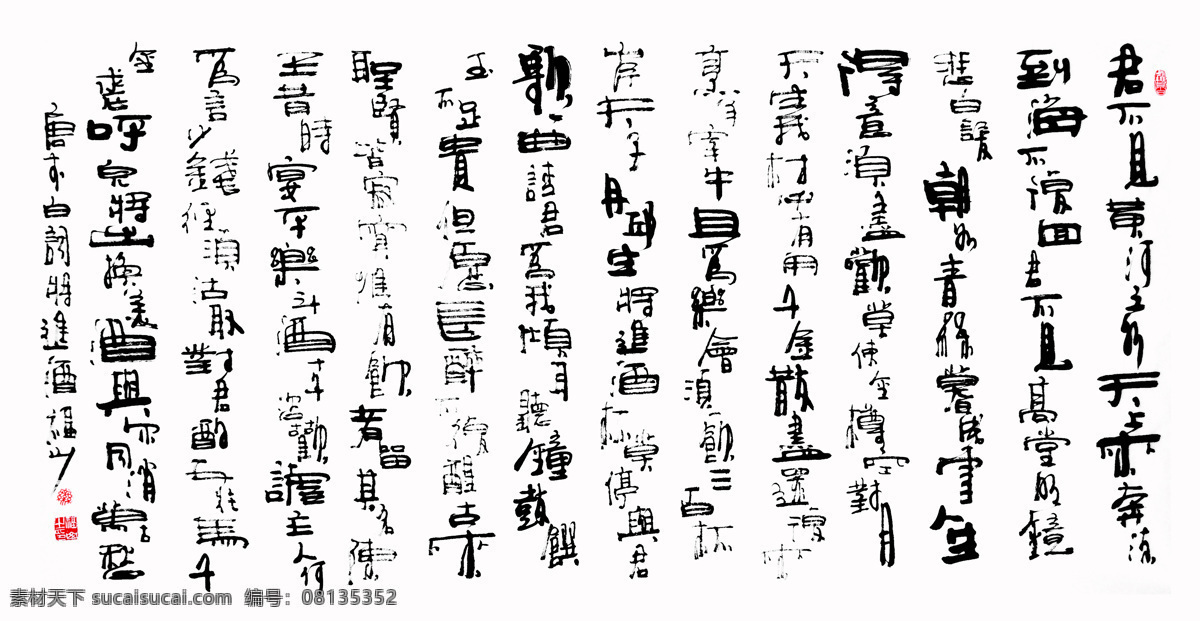 君不見黃河之水天上來奔流
到海不復回君不見高堂明鏡
悲白髮朝如青絲暮成雪人生
得意須盡歡莫使金樽空對月
天生我材必有用千金散盡還復來
烹羊宰牛且為樂會須一飲三百杯
岑夫子丹邱生將進酒杯莫停與君
歌一曲請君為我傾耳聽鐘鼓饌
玉不足貴但願長醉不復醒古來
聖賢皆寂寞惟有飲者留其名陳
王昔時宴平樂斗酒十千恣歡謔主人何
為言少錢徑須沽取對君酌五花馬千
金裘呼兒將出換美酒與爾同消萬古愁
唐李白詞將進酒福山
素材天下 sucaisucai.com 编号：08135352